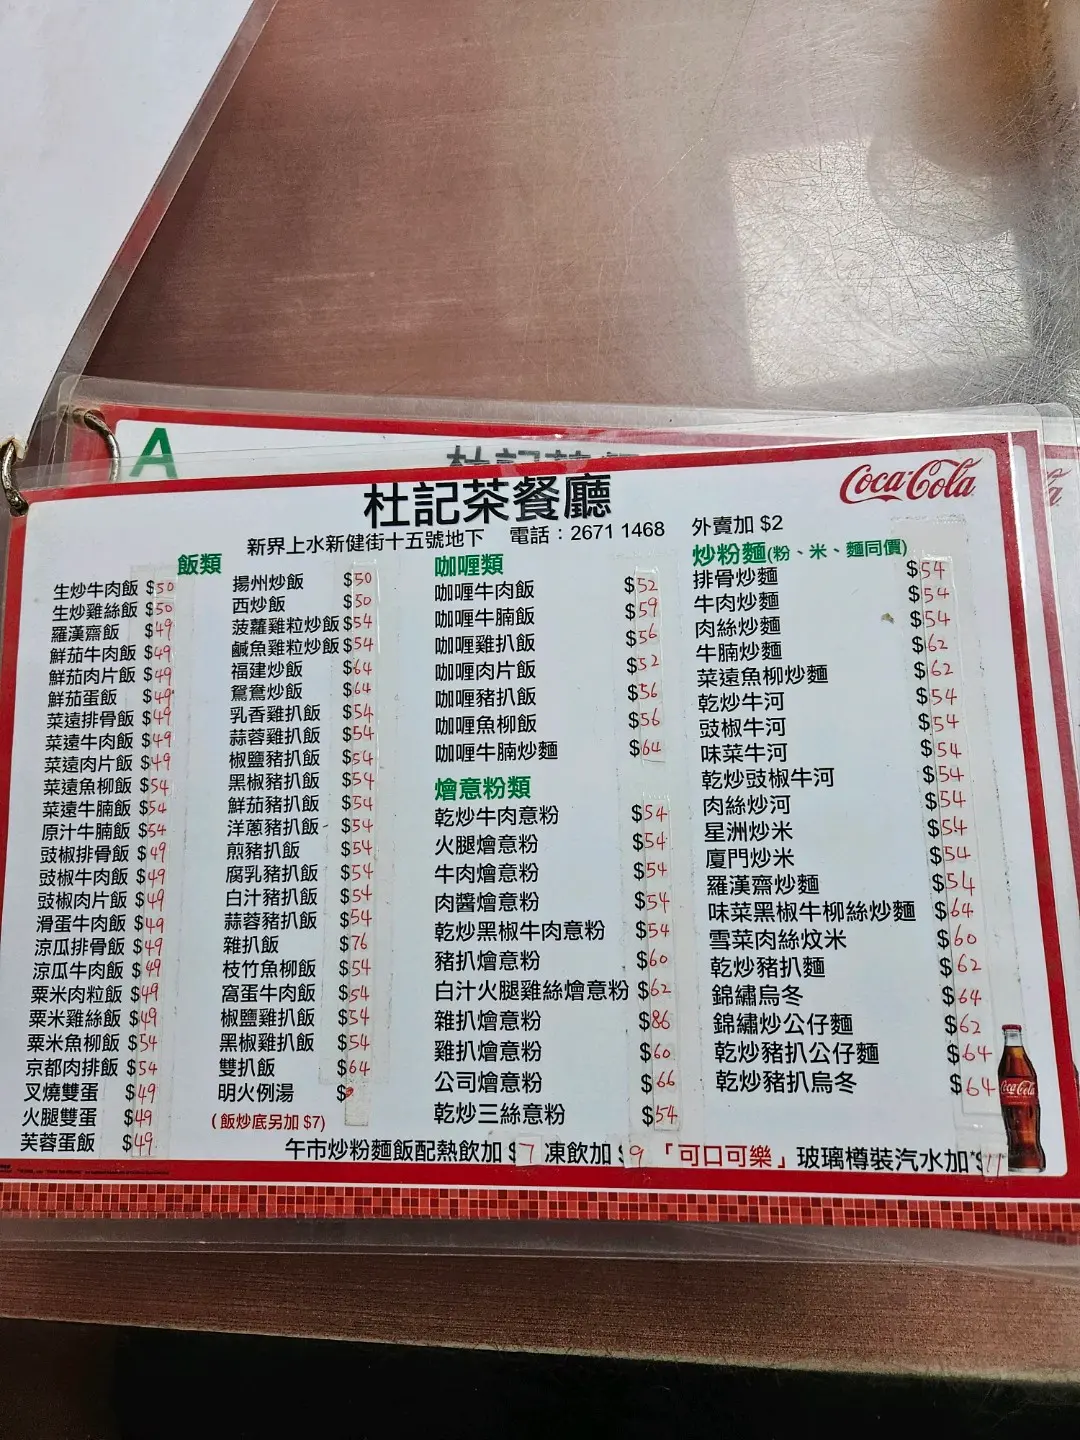 A
杜記茶餐廳
Coca-Cola
新界上水新健街十五號地下 電話：2671 1468 外賣加 $2
飯類
生炒牛肉飯 $50
生炒雞絲飯 $50
羅漢齋飯 $49
鮮茄牛肉飯 $49
鮮茄肉片飯 $49
鮮茄蛋飯 $49
菜遠排骨飯 $49
菜遠牛肉飯 $49
菜遠肉片飯 $49
菜遠魚柳飯 $54
菜遠牛腩飯 $54
原汁牛腩飯 $54
豉椒排骨飯 $49
豉椒牛肉飯 $49
豉椒肉片飯 $49
滑蛋牛肉飯 $49
涼瓜排骨飯 $49
涼瓜牛肉飯 $49
粟米肉粒飯 $49
粟米雞絲飯 $49
粟米魚柳飯 $54
京都肉排飯 $54
叉燒雙蛋 $49
火腿雙蛋 $49
芙蓉蛋飯 $49
揚州炒飯 $50
西炒飯 $50
菠蘿雞粒炒飯 $54
鹹魚雞粒炒飯 $54
福建炒飯 $64
鴛鴦炒飯 $64
乳香雞扒飯 $54
蒜蓉雞扒飯 $54
椒鹽豬扒飯 $54
黑椒豬扒飯 $54
鮮茄豬扒飯 $54
洋蔥豬扒飯 $54
煎豬扒飯 $54
腐乳豬扒飯 $54
白汁豬扒飯 $54
蒜蓉豬扒飯 $54
雜扒飯 $76
枝竹魚柳飯 $54
窩蛋牛肉飯 $54
椒鹽雞扒飯 $54
黑椒雞扒飯 $54
雙扒飯 $64
明火例湯 $
(飯炒底另加 $7)
咖喱類
咖喱牛肉飯 $52
咖喱牛腩飯 $59
咖喱雞扒飯 $56
咖喱肉片飯 $52
咖喱豬扒飯 $56
咖喱魚柳飯 $56
咖喱牛腩炒麵 $64
燴意粉類
乾炒牛肉意粉 $54
火腿燴意粉 $54
牛肉燴意粉 $54
肉醬燴意粉 $54
乾炒黑椒牛肉意粉 $54
豬扒燴意粉 $60
白汁火腿雞絲燴意粉 $62
雜扒燴意粉 $86
雞扒燴意粉 $60
公司燴意粉 $66
乾炒三絲意粉 $54
炒粉麵(粉、米、麵同價)
排骨炒麵 $54
牛肉炒麵 $54
肉絲炒麵 $54
牛腩炒麵 $62
菜遠魚柳炒麵 $62
乾炒牛河 $54
豉椒牛河 $54
味菜牛河 $54
乾炒豉椒牛河 $54
肉絲炒河 $54
星洲炒米 $54
廈門炒米 $54
羅漢齋炒麵 $54
味菜黑椒牛柳絲炒麵 $64
雪菜肉絲炆米 $60
乾炒豬扒麵 $62
錦繡烏冬 $64
錦繡炒公仔麵 $62
乾炒豬扒公仔麵 $64
乾炒豬扒烏冬 $64
Coca-Cola
午市炒粉麵飯配熱飲加 $7 凍飲加 $9 「可口可樂」玻璃樽裝汽水加 $11